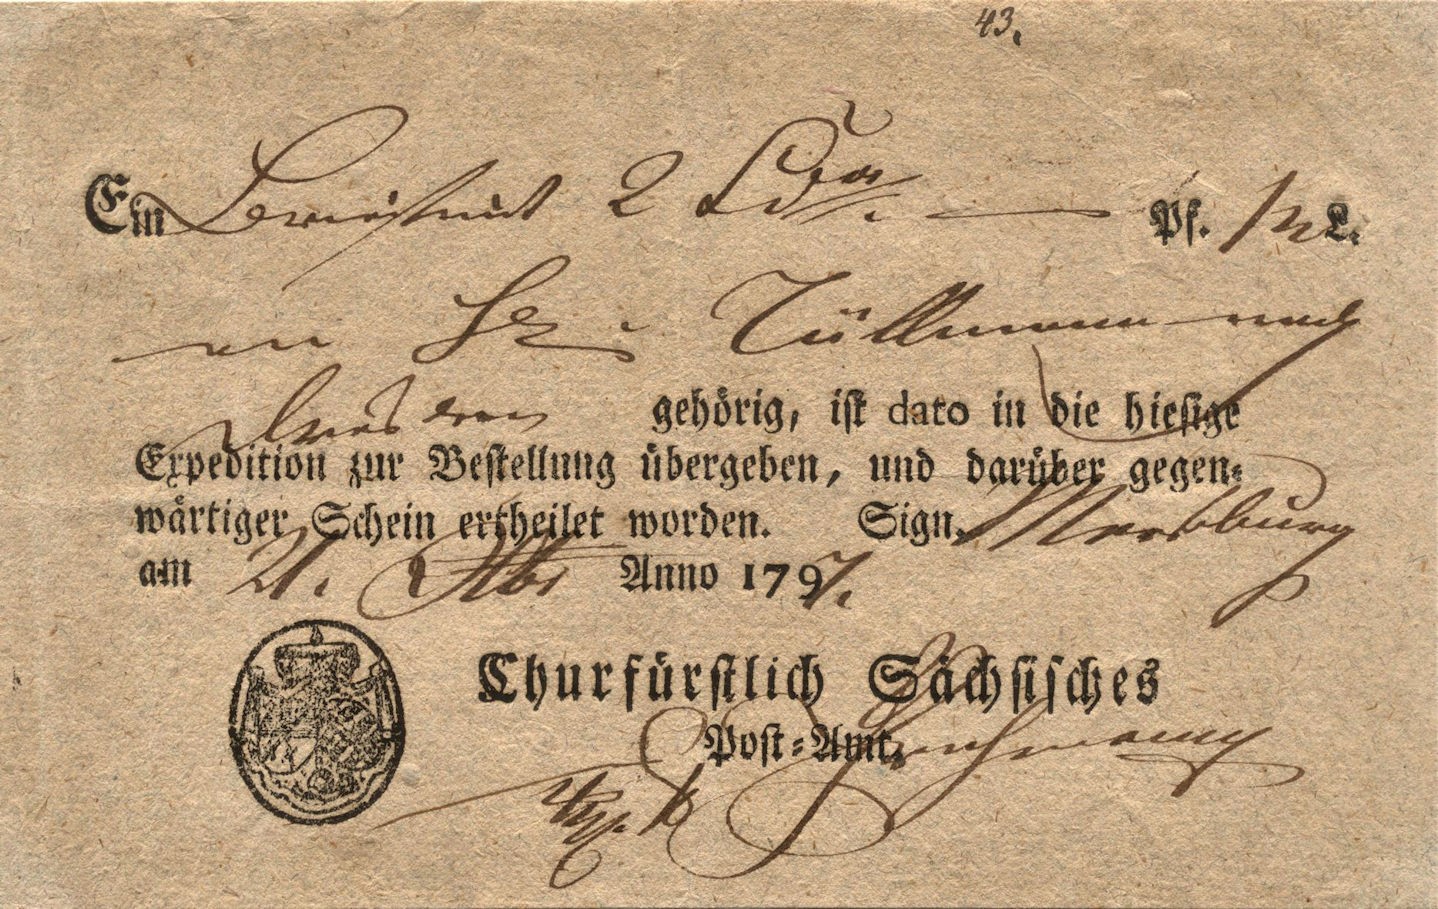 43.
Ein Brief mit 2 Ld'or Pf. L.
an H. Tüllmann nach
Dresden gehörig, ist dato in die hiesige
Expedition zur Bestellung übergeben, und darüber gegen-
wärtiger Schein ertheilet worden. Sign. Merseburg
am 21. Anno 1797.
Churfürstlich Sächsisches
Post-Amt.